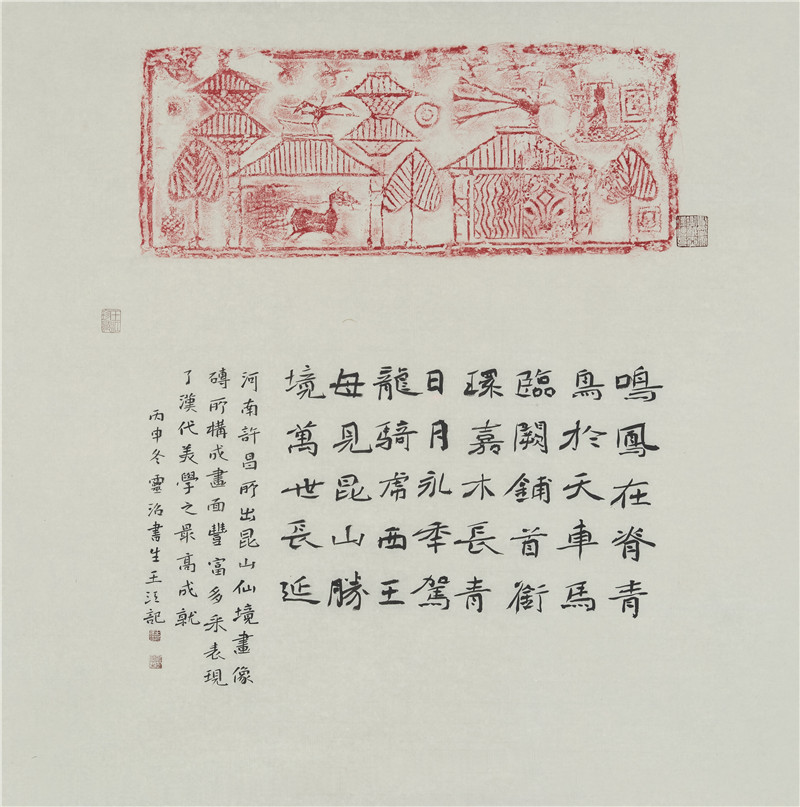 鳴鳳在脊青
鳥於天車馬
臨闕鋪首銜
環嘉木長青
日月永年駕
龍騎虎西王
母見昆山勝
境萬世長延
河南許昌所出昆山仙境畫像
磚所構成畫面豐富多采表現
了漢代美學之最高成就
丙申冬靈沼書生王泛記